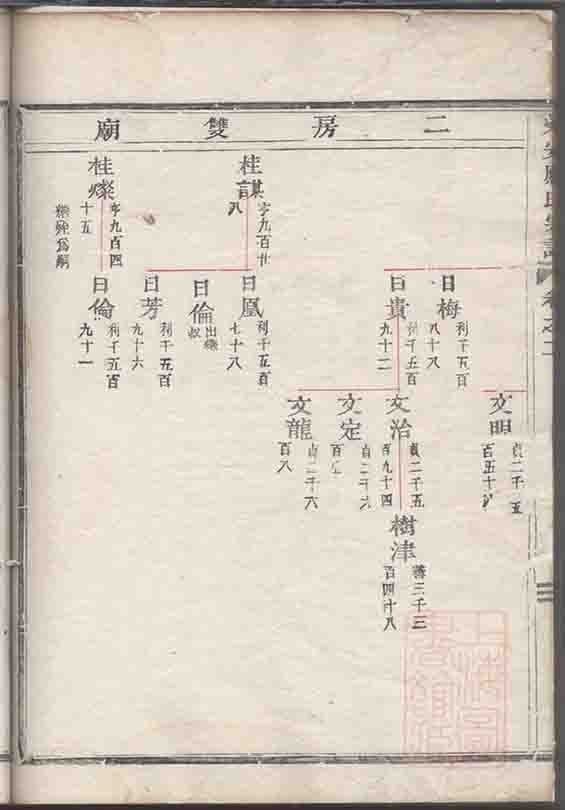 二房雙廟
桂謀
亨九百廿
八
桂燦
亨九百四
十五
日梅
利千五百
八十八
日貴
利千五百
九十二
日鳳
利千五百
七十八
日倫
出繼
叔
日芳
利千五百
九十六
日倫
利千五百
九十一
文明
貞二千五
文治
貞二千五
百九十四
文定
貞二千六
文龍
貞二千六
百八
樹津
三千三
百四十八